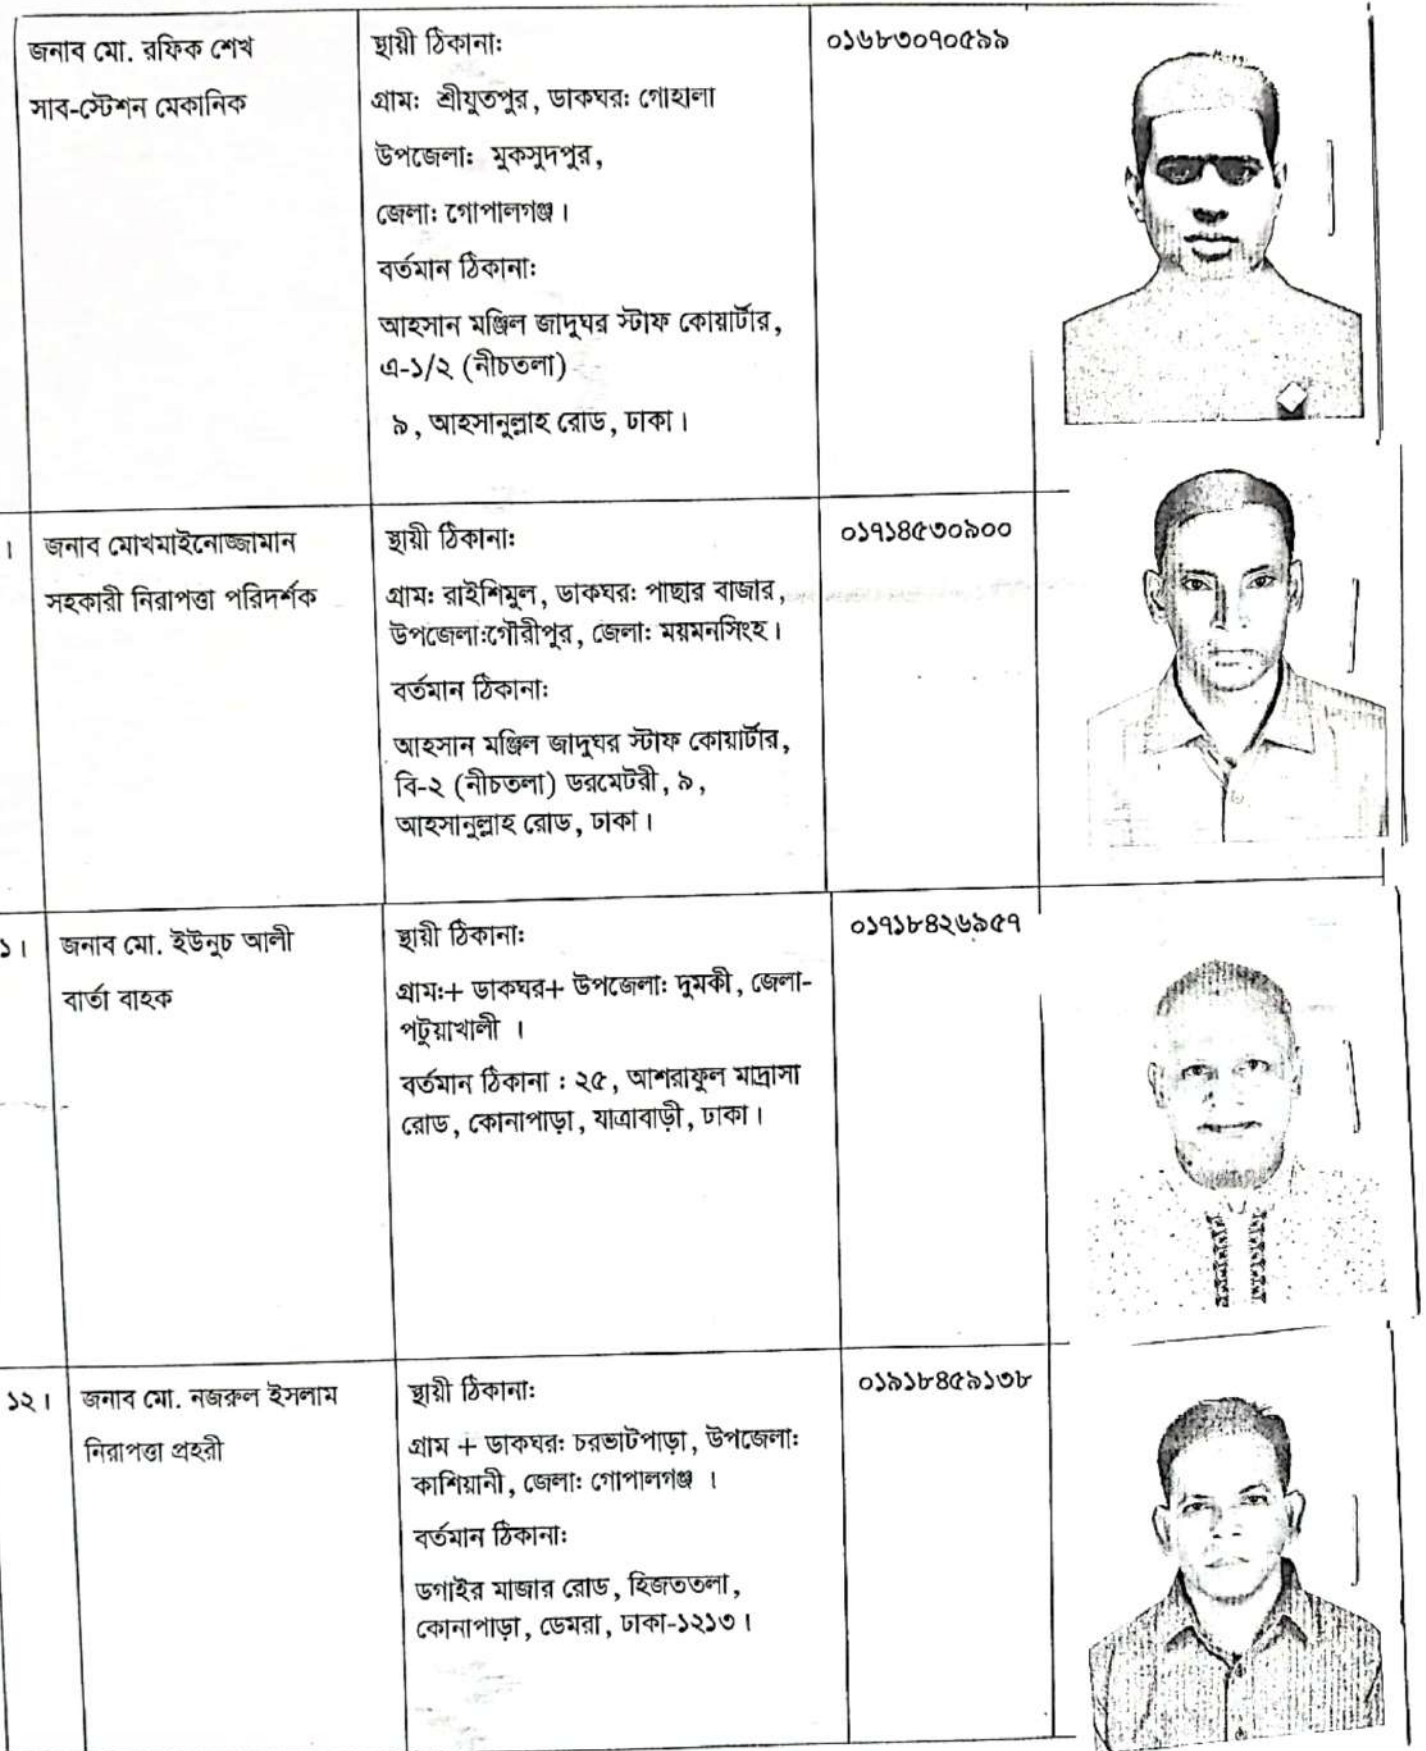 জনাব মো. রফিক শেখ
সাব-স্টেশন মেকানিক
স্থায়ী ঠিকানা:
গ্রাম: শ্রীযুতপুর, ডাকঘর: গোহালা
উপজেলা: মুকসুদপুর,
জেলা: গোপালগঞ্জ।
বর্তমান ঠিকানা:
আহসান মঞ্জিল জাদুঘর স্টাফ কোয়ার্টার,
এ-১/২ (নীচতলা)
৯, আহসানুল্লাহ রোড, ঢাকা।
০১৬৮৩০৭০৫৯৯
।
জনাব মোখমাইনোজ্জামান
সহকারী নিরাপত্তা পরিদর্শক
স্থায়ী ঠিকানা:
গ্রাম: রাইশিমুল, ডাকঘর: পাছার বাজার,
উপজেলা:গৌরীপুর, জেলা: ময়মনসিংহ।
বর্তমান ঠিকানা:
আহসান মঞ্জিল জাদুঘর স্টাফ কোয়ার্টার,
বি-২ (নীচতলা) ডরমেটরী, ৯,
আহসানুল্লাহ রোড, ঢাকা।
০১৭১৪৫৩০৯০০
১।
জনাব মো. ইউনুচ আলী
বার্তা বাহক
স্থায়ী ঠিকানা:
গ্রাম:+ ডাকঘর+ উপজেলা: দুমকী, জেলা-
পটুয়াখালী ।
বর্তমান ঠিকানা : ২৫, আশরাফুল মাদ্রাসা
রোড, কোনাপাড়া, যাত্রাবাড়ী, ঢাকা।
০১৭১৮৪২৬৯৫৭
১২।
জনাব মো. নজরুল ইসলাম
নিরাপত্তা প্রহরী
স্থায়ী ঠিকানা:
গ্রাম + ডাকঘর: চরভাটপাড়া, উপজেলা:
কাশিয়ানী, জেলা: গোপালগঞ্জ ।
বর্তমান ঠিকানা:
ডগাইর মাজার রোড, হিজততলা,
কোনাপাড়া, ডেমরা, ঢাকা-১২১৩।
০১৯১৮৪৫৯১৩৮